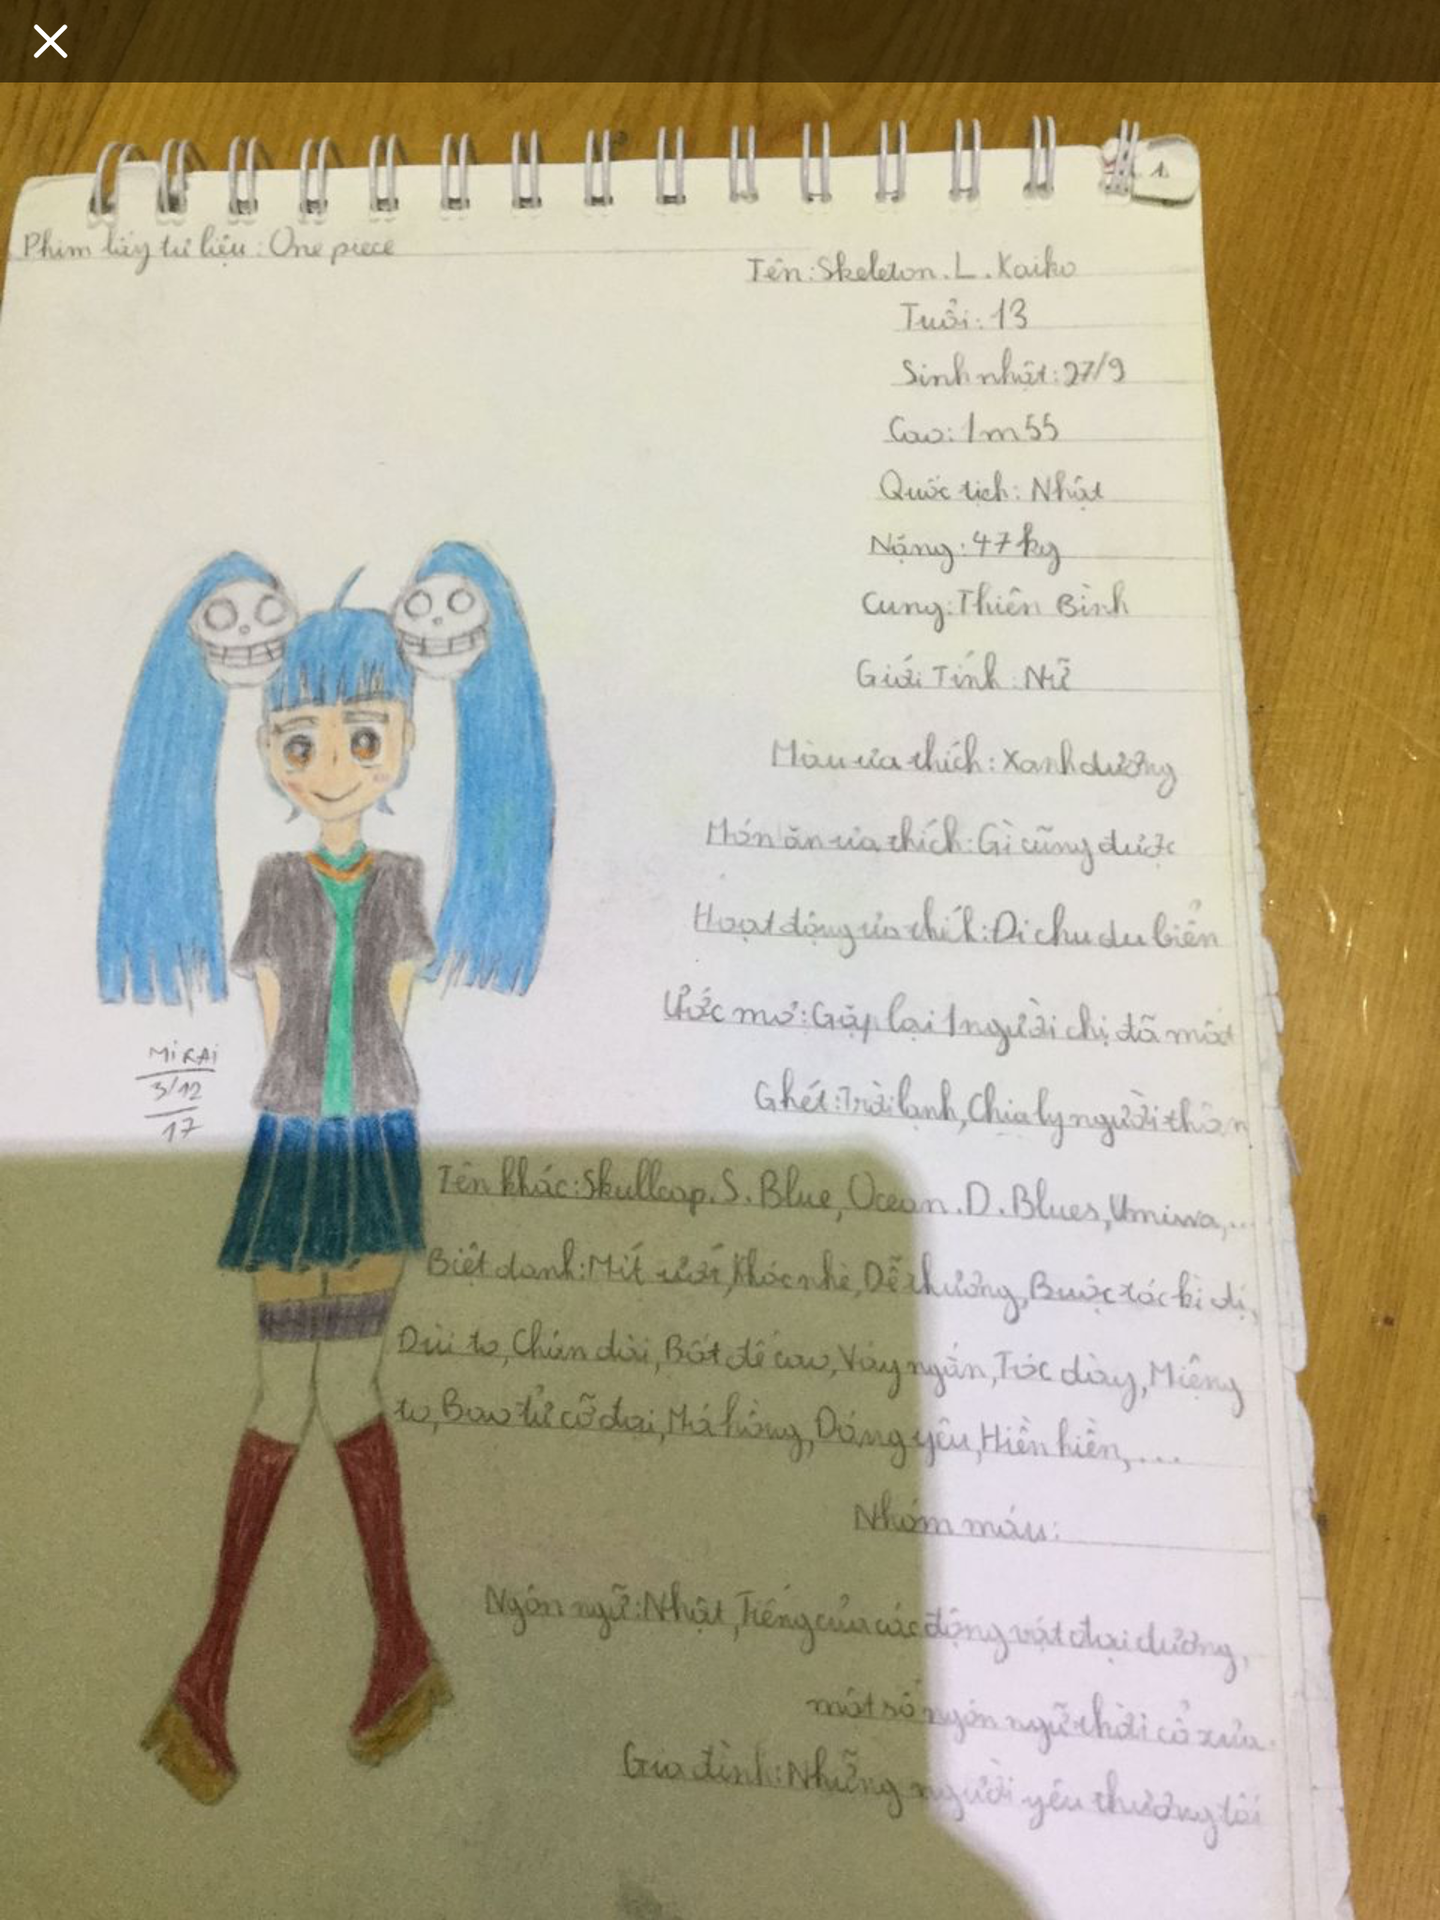 Phim lấy tư liệu: One piece
Tên: Skeleton. L. Kaiko
Tuổi: 13
Sinh nhật: 27/9
Cao: 1m55
Quốc tịch: Nhật
Nặng: 47kg
Cung: Thiên Bình
Giới Tính: Nữ
Màu ưa thích: Xanh dương
Món ăn ưa thích: Gì cũng được
Hoạt động ưa thích: Đi chu du biển
Ước mơ: Gặp lại 1 người chị đã mất
Ghét: Trời lạnh, Chia ly người thân
MiRAi
3/12
17
Tên khác: Skullcap. S. Blue, Ocean. D. Blues, Umiwa,...
Biệt danh: Mít ướt, Khóc nhè, Dễ thương, Buộc tóc kì dị,
Dùi to, Chân dài, Bốt đế cao, Váy ngắn, Tóc dày, Miệng
to, Bao tử cỡ đại, Má hồng, Dáng yêu, Hiền hiền,...
Nhóm máu:
Ngôn ngữ: Nhật, Tiếng của các động vật đại dương,
một số ngôn ngữ thời cổ xưa.
Gia đình: Những người yêu thương tôi